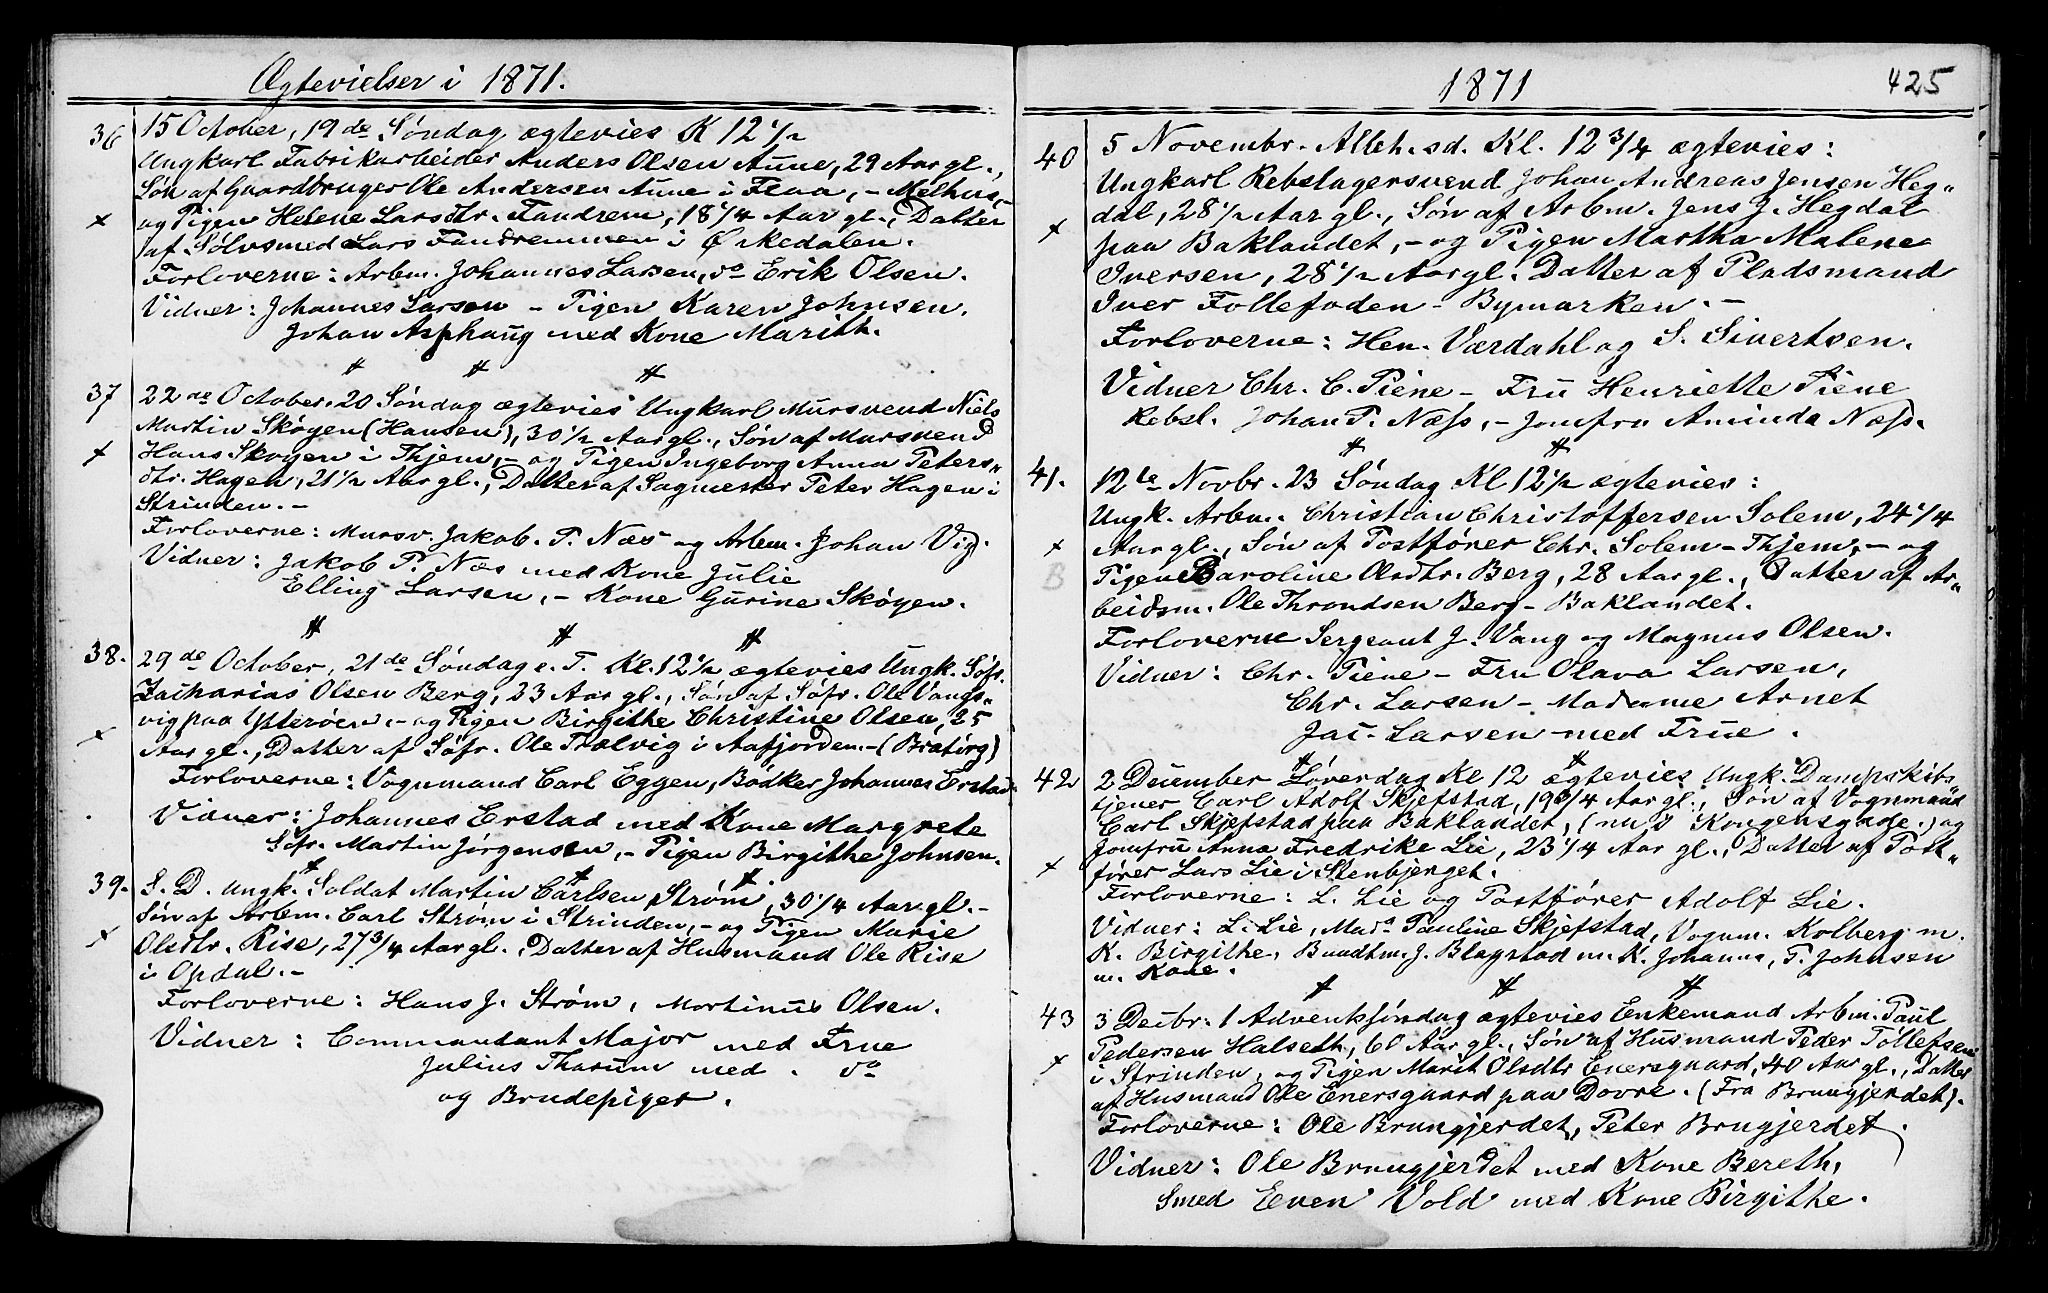 Ægtevielser i 1871.
36 15 October, 19de Söndag ægtevies K 12 1/2
Ungkarl Fabrikarbeider Anders Olsen Aune, 29 Aar gl.,
Søn af Gaardbruger Ole Andersen Aune i Flaa, - Melhus,
og Pigen Helene Larsdtr. Fandrem, 18 1/4 Aar gl., Datter
af Sølvsmed Lars Fandremmen i Ørkedalen.
Forloverne: Arbm. Johannes Larsen, do Erik Olsen.
Vidner: Johannes Larsen - Pigen Karen Johnsen.
Johan Asphaug med Kone Marith.
37 22de October. 20 Söndag ægtevies Ungkarl Mursvend Niels
Martin Skøyen (Hansen), 30 1/2 Aar gl., Søn af Mursvend
Hans Skøyen i Thjem, - og Pigen Ingeborg Anna Peters"
dtr. Hagen, 21 1/2 Aar gl., Datter af Sagmester Peter Hagen i
Strinden. -
Forloverne: Mursv. Jakob. P. Næs og Arbm. Johan Vig.
Vidner: Jakob P. Næs med Kone Julie
Elling Larsen, - Kone Gurine Skøyen.
38. 29de October, 21de Söndag e. T. Kl. 12 1/2 ægtevies Ungk. Söfr.
Zacharias Olsen Berg, 23 Aar gl., Søn af Söfr. Ole Vangs"
vig paa Ytterøen, - og Pigen Birgithe Christine Olsen, 25
Aar gl., Datter af Söfr. Ole Trælvig i Aafjorden. - (Bratörg)
Forloverne: Vognmand Carl Eggen, Bødker Johannes Erstad.
Vidner: Johannes Erstad med Kone Margrete
Söfr. Martin Jørgensen, - Pigen Birgithe Johnsen.
39. S. D. Ungk. Soldat Martin Carlsen Strøm, 30 1/4 Aar gl. -
Søn af Arbm. Carl Strøm i Strinden, - og Pigen Marie
Olsdtr. Rise, 27 3/4 Aar gl., Datter af Husmand Ole Rise
i Opdal. -
Forloverne: Hans J. Strøm, Martinus Olsen.
Vidner: Commandant Major med Frue
Julius Tharum med. do
og Brudepiger.
1871 425
40 5 Novembr. Alleh. sd. Kl. 12 3/4 ægtevies:
Ungkarl Rebslagersvend Johan Andreas Jensen Heg"
dal, 28 1/2 Aar gl., Søn af Arbm. Jens J. Hegdal
paa Baklandet, - og Pigen Martha Malene
Iversen, 28 1/2 Aar gl. Datter af Pladsmand
Iver Follefoden - Bymarken. -
Forloverne: Hen. Værdahl og S. Sivertsen.
Vidner Chr. C. Piene - Fru Henriette Piene
Rebsl. Johan P. Næss, - Jomfru Aminda Næss.
41. 12te Novbr. 23 Söndag Kl 12 1/2 ægtevies:
Ungk. Arbm. Christian Christoffersen Solem, 24 1/4
Aar gl., Søn af Postfører Chr. Solem - Thjem, - og
B Pigen Karoline Olsdtr. Berg, 28 Aar gl., Datter af Ar"
beidsm. Ole Throndsen Berg - Baklandet.
Forloverne Sergeant J. Vang og Magnus Olsen.
Vidner: Chr. Piene - Fru Olava Larsen,
Chr. Larsen - Madame Arnet
Jac. Larsen med Frue.
42 2 December Löverdag Kl 12 ægtevies Ungk. Dampskibs"
tjener Carl Adolf Skjefstad, 19 3/4 Aar gl., Søn af Vognmand
Carl Skjefstad paa Baklandet, (nu i Kongensgade.) og
Jomfru Anna Fredrikke Lie, 23 1/4 Aar gl., Datter af Post"
fører Lars Lie i Stenbjerget.
Forloverne: L. Lie og Postfører Adolf Lie.
Vidner: L. Lie, Mad. Pauline Skjefstad, Vognm. Kolberg m.
K. Birgithe, Bundtm. J. Blagstad m. K. Johanna, P. Johnsen
m. Kone.
43 3 Decbr. 1 Adventsjöndag ægtevies Enkemand Arbm. Paul
Pedersen Halseth, 60 Aar gl., Søn af Husmand Peder Tollefsen
i Strinden, og Pigen Marit Olsdtr Enersgaard, 40 Aar gl., Datter
af Husmand Ole Enersgaard paa Dovre. (Fra Brungjerdet).
Forloverne: Ole Brungjerdet, Peter Brugjerdet.
Vidner: Ole Brungjerdet med Kone Bereth,
Smed Even Vold med Kone Birgithe.